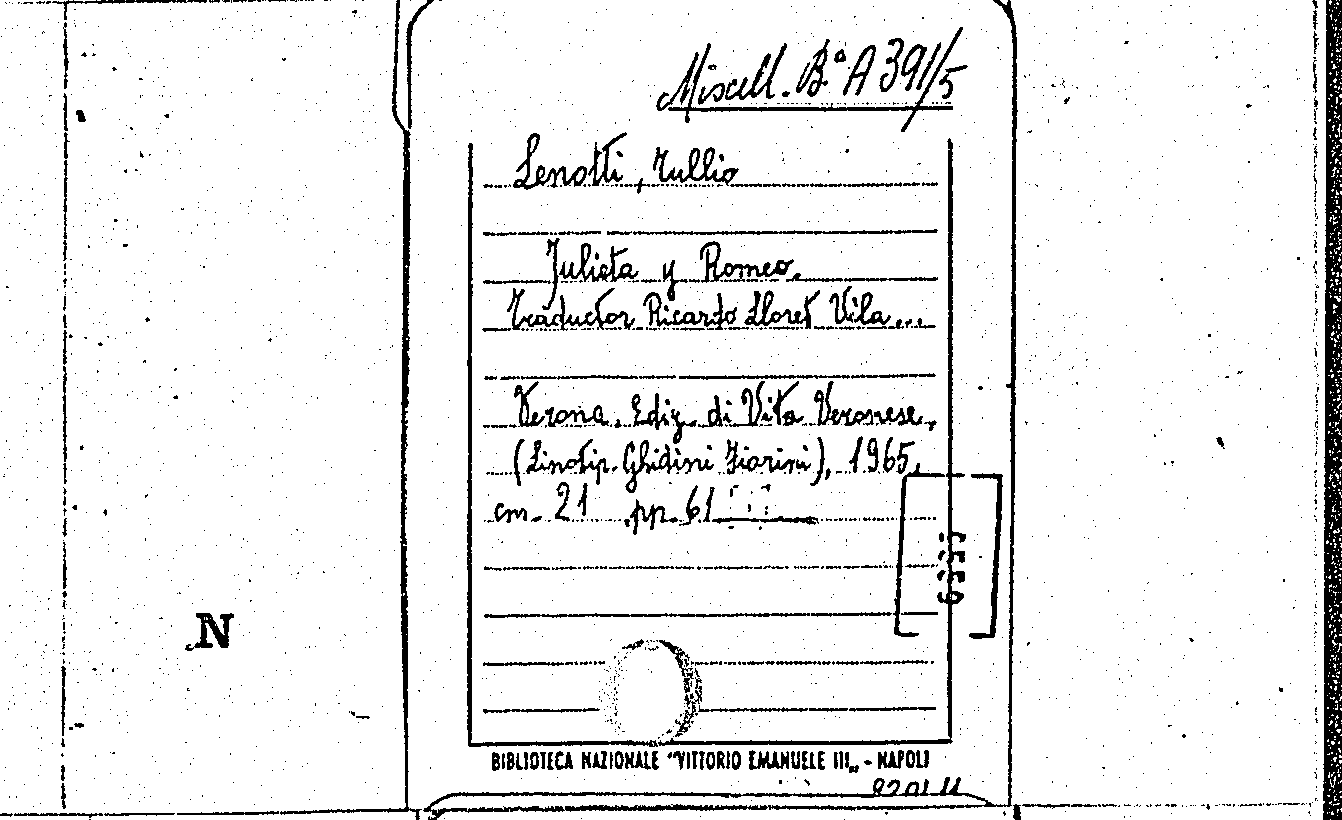 Miscell. Bª A 391/5
Lenotti, Tullio
Julieta y Romeo.
Traductor Ricardo Lloret Vila...
Verona, Ediz. di Vita Veronese,
(Linotip. Ghidini Fiorini), 1965,
cm. 21 pp. 61
N
BIBLIOTECA NAZIONALE "VITTORIO EMANUELE III„ - NAPOLI